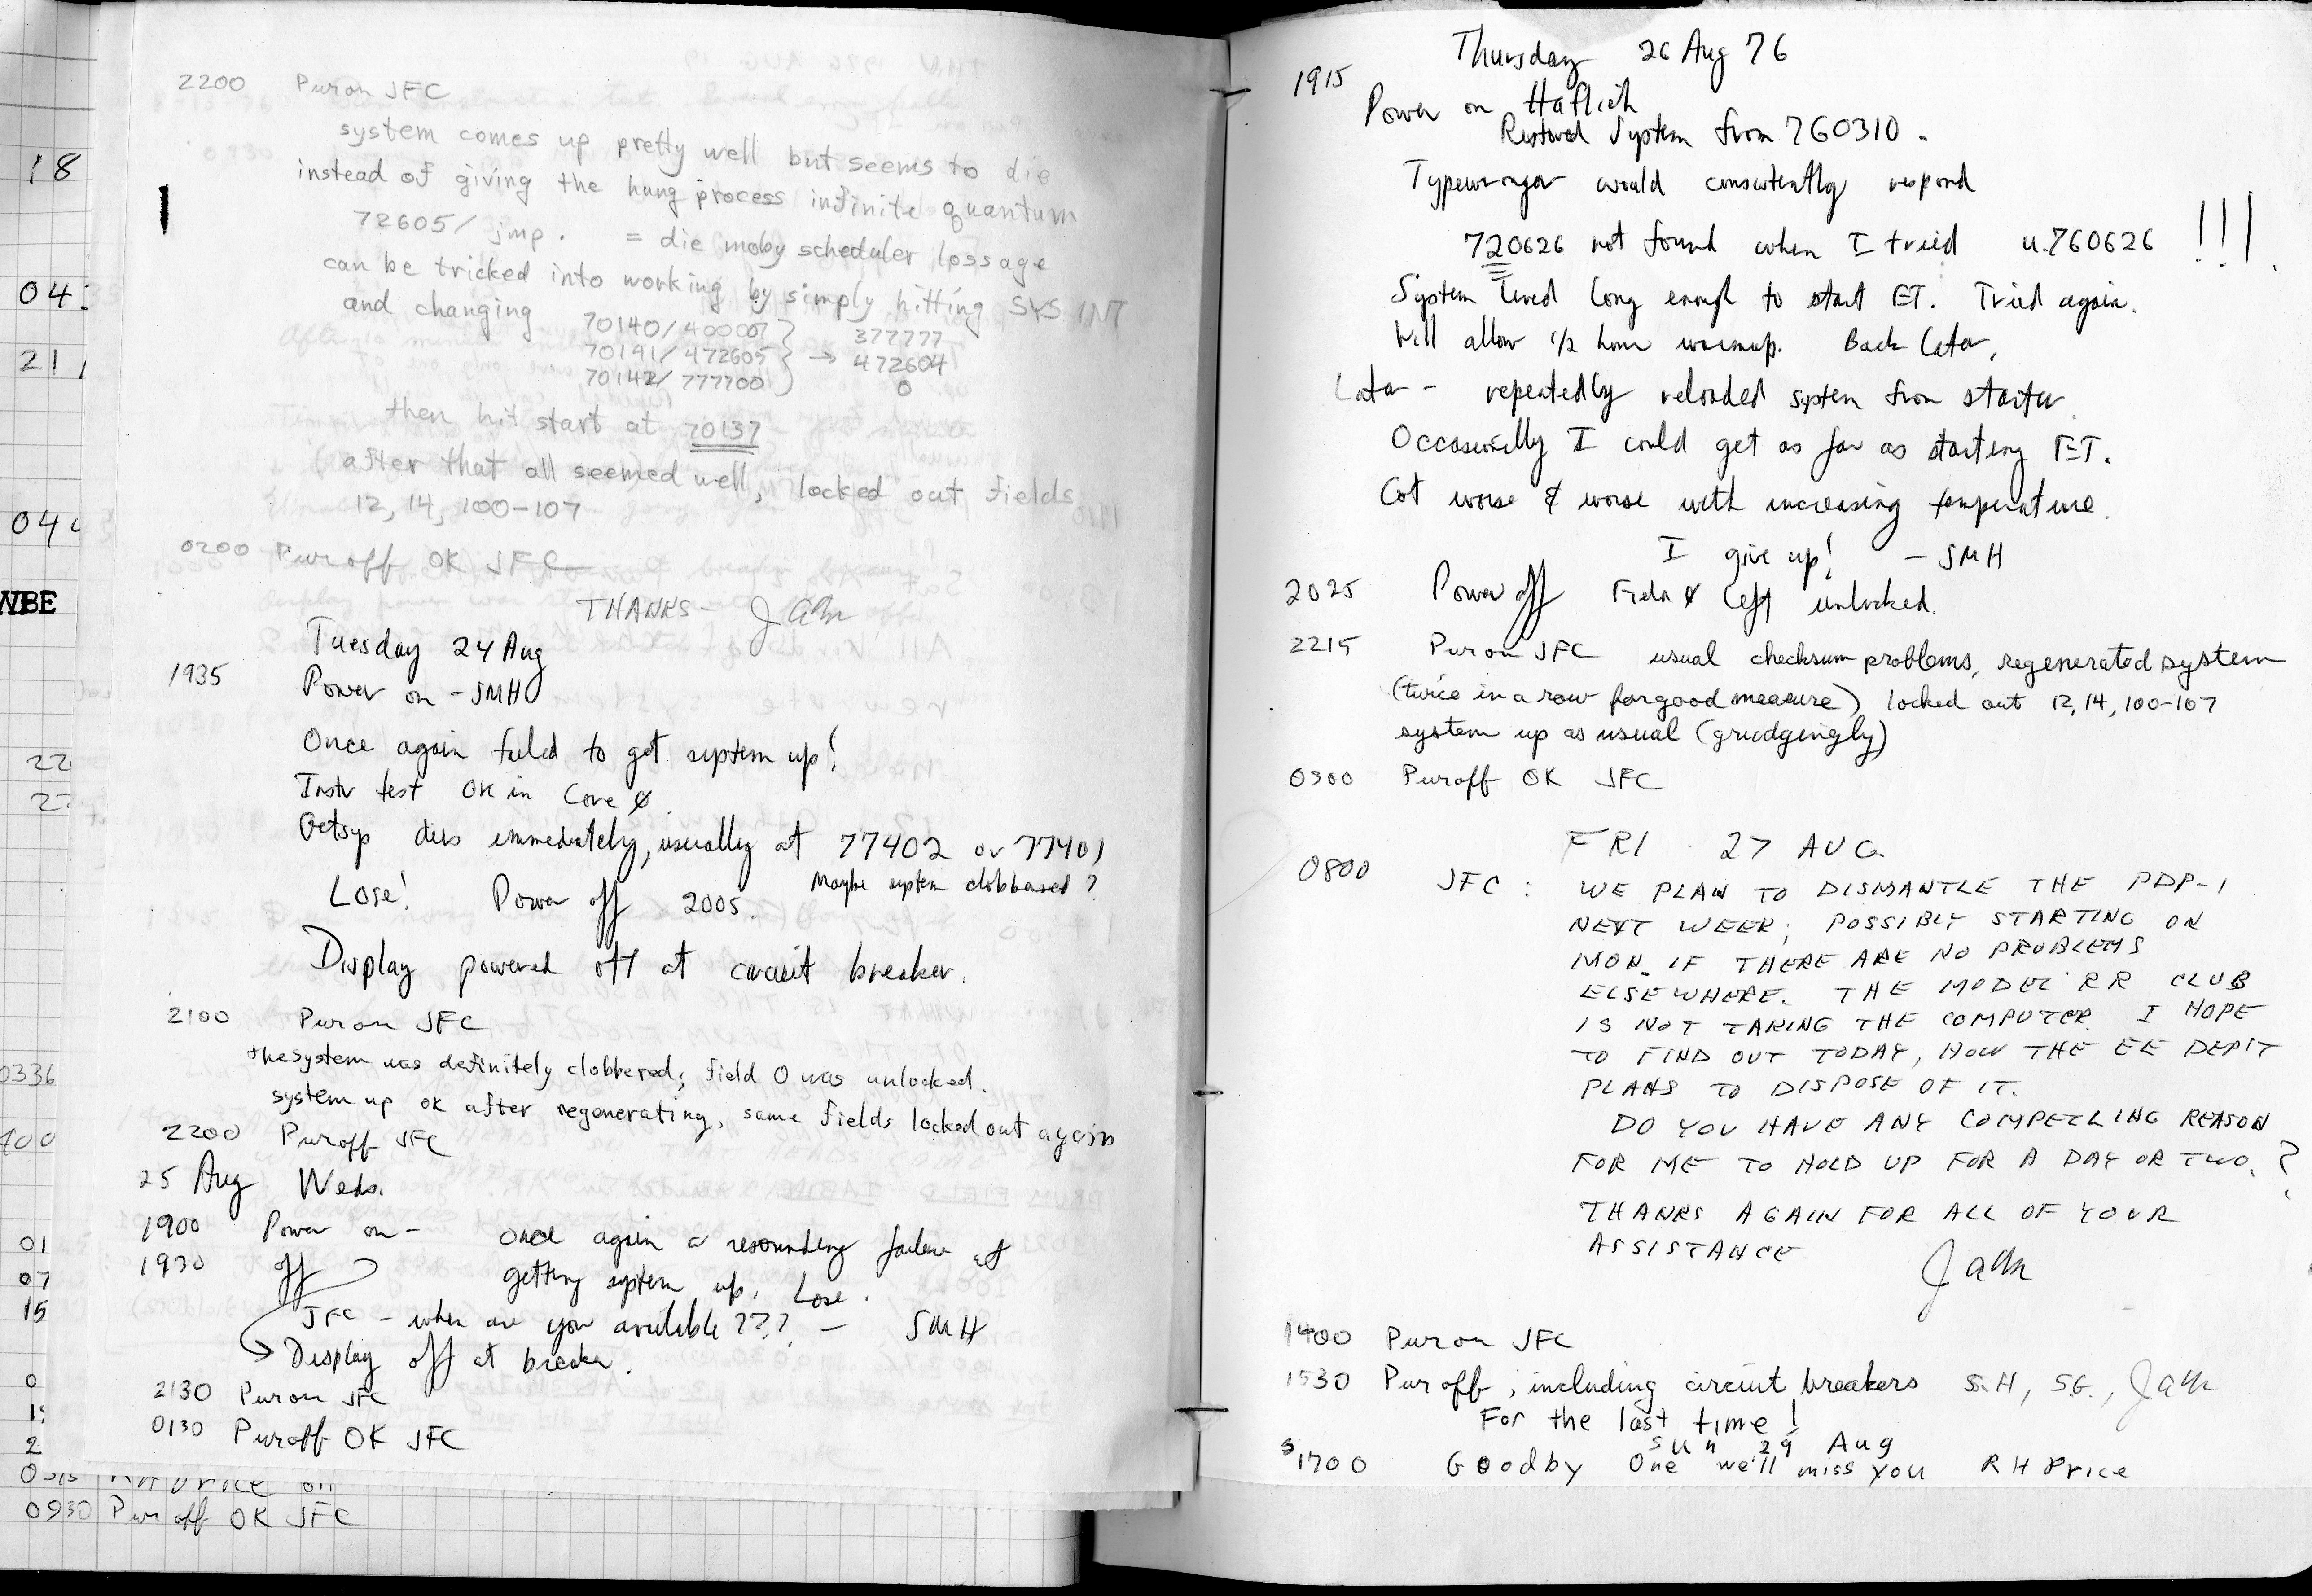 18
04
21
04
WBE
22
2
0336
400
01
07
15
0
1
2
2200 Pwr on JFC
system comes up pretty well but seems to die
instead of giving the hung process infinite quantum
72605/ jmp . = die moby scheduler lossage
can be tricked into working by simply hitting SYS INT
and changing 70140/400007 } 377777
70141/472605 } → 472604
70142/777700 ) 0
then hit start at 70137
(after that all seemed well, locked out fields
12, 14, 100-107
0200 Pwr off OK JFC
THANKS- Jack
Tuesday 24 Aug
1935 Power on - SMH
Once again failed to get system up!
Instr test OK in Core 0.
Getsys dies immediately, usually at 77402 or 77401
Maybe system clobbered?
Lose! Power off 2005.
Display powered off at circuit breaker.
2100 Pwr on JFC
the system was definitely clobbered; field 0 was unlocked.
system up ok after regenerating, same fields locked out again
2200 Pwr off JFC
25 Aug Weds.
1900 Power on - once again a resounding failure at
1930 off getting system up. Lose.
JFC - when are you available??? - SMH
→ Display off at breaker.
2130 Pwr on JFC
0130 Pwr off OK JFC
RH Price on
0930 Pwr off OK JFC
Thursday 26 Aug 76
1915 Power on Haflich
Restored System from 760310.
Typewronger would consistently respond
720626 not found when I tried u.760626 !!!
System lived long enough to start ET. Tried again.
Will allow 1/2 hour warmup. Back later.
Later - repeatedly reloaded system from starter.
Occasionally I could get as far as starting ET.
Got worse & worse with increasing temperature.
I give up! - SMH
2025 Power off Field 0 left unlocked.
2215 Pwr on JFC usual checksum problems, regenerated system
(twice in a row for good measure) locked out 12, 14, 100-107
system up as usual (grudgingly)
0300 Pwr off OK JFC
FRI 27 AUG
0800 JFC : WE PLAN TO DISMANTLE THE PDP-1
NEXT WEEK; POSSIBLY STARTING ON
MON. IF THERE ARE NO PROBLEMS
ELSEWHERE. THE MODEL RR CLUB
IS NOT TAKING THE COMPUTER. I HOPE
TO FIND OUT TODAY, HOW THE EE DEPT
PLANS TO DISPOSE OF IT.
DO YOU HAVE ANY COMPELLING REASON
FOR ME TO HOLD UP FOR A DAY OR TWO. ?
THANKS AGAIN FOR ALL OF YOUR
ASSISTANCE
Jack
1400 Pwr on JFC
1530 Pwr off, including circuit breakers S.H, S.G., Jack
For the last time!
Sun 29 Aug
1700 Goodby One we'll miss you RH Price